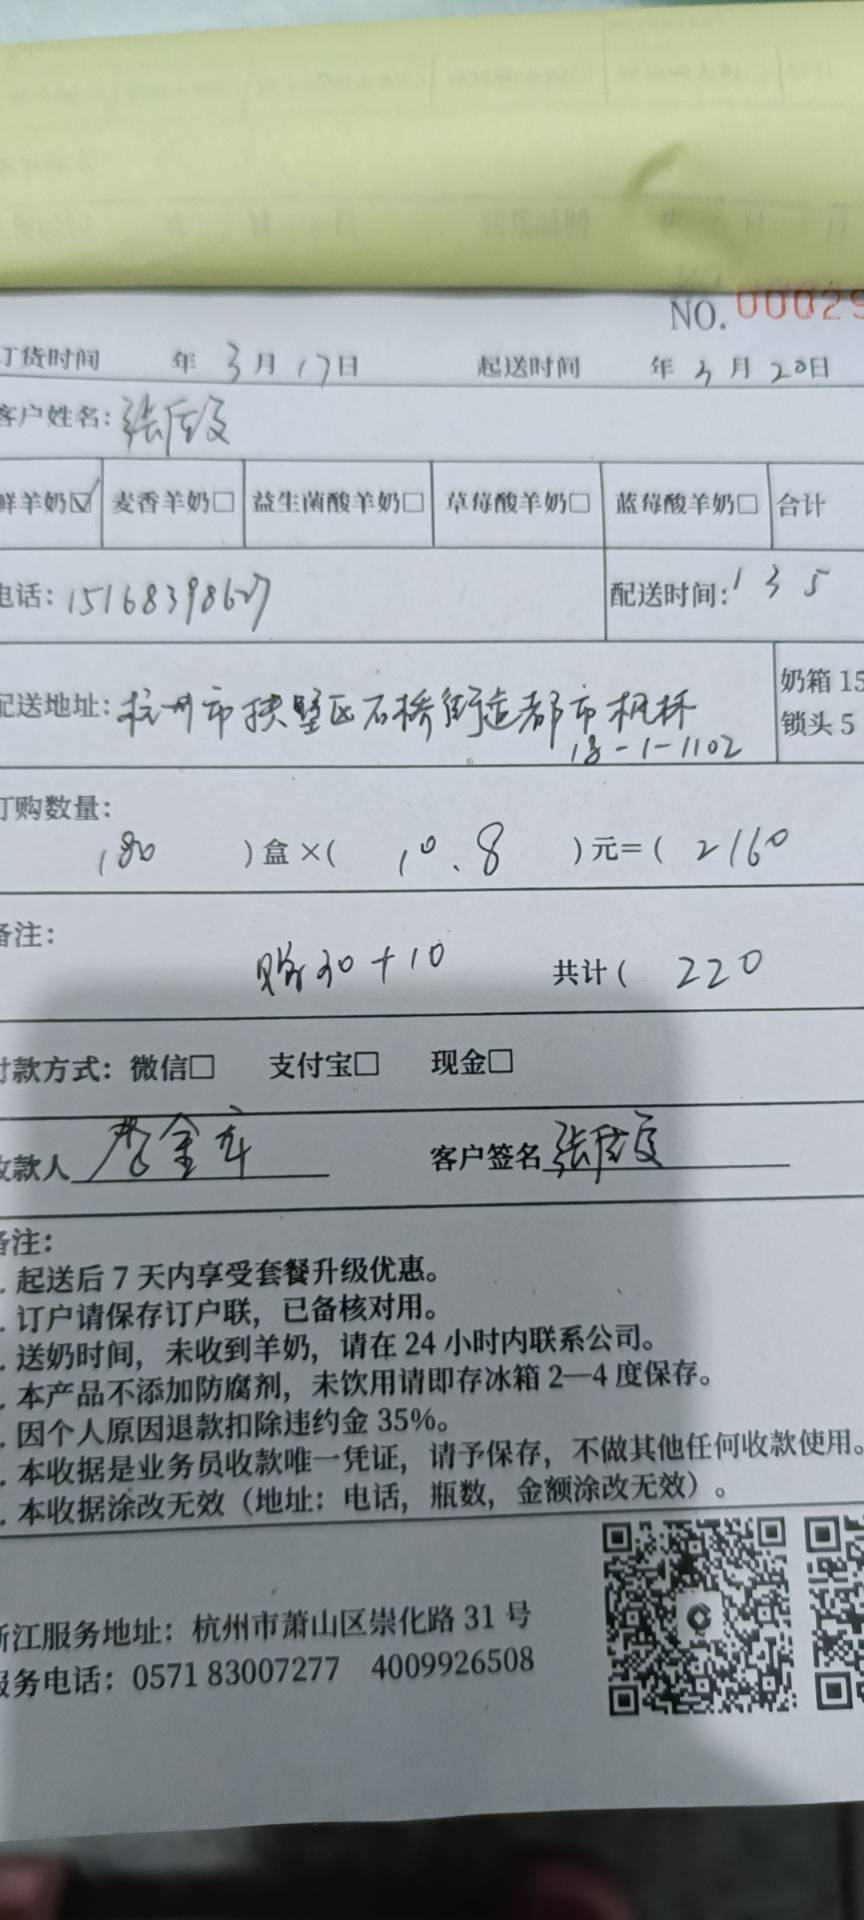 NO.00029
订货时间 年 3月17日 起送时间 年 3月20日
客户姓名：张
鲜羊奶☑ 麦香羊奶□ 益生菌酸羊奶□ 草莓酸羊奶□ 蓝莓酸羊奶□ 合计
电话：15168398627 配送时间：1 3 5
配送地址：杭州市拱墅区石桥街道都市枫林 奶箱 15
18-1-1102 锁头 5
订购数量：
180 )盒×( 10.8 )元=( 2160
备注：
赠30+10 共计( 220
付款方式：微信□ 支付宝□ 现金□
收款人 金 客户签名 张
备注：
. 起送后 7 天内享受套餐升级优惠。
. 订户请保存订户联，已备核对用。
. 送奶时间，未收到羊奶，请在 24 小时内联系公司。
. 本产品不添加防腐剂，未饮用请即存冰箱 2—4 度保存。
. 因个人原因退款扣除违约金 35%。
. 本收据是业务员收款唯一凭证，请予保存，不做其他任何收款使用。
. 本收据涂改无效（地址：电话，瓶数，金额涂改无效）。
浙江服务地址：杭州市萧山区崇化路 31 号
服务电话：0571 83007277 4009926508